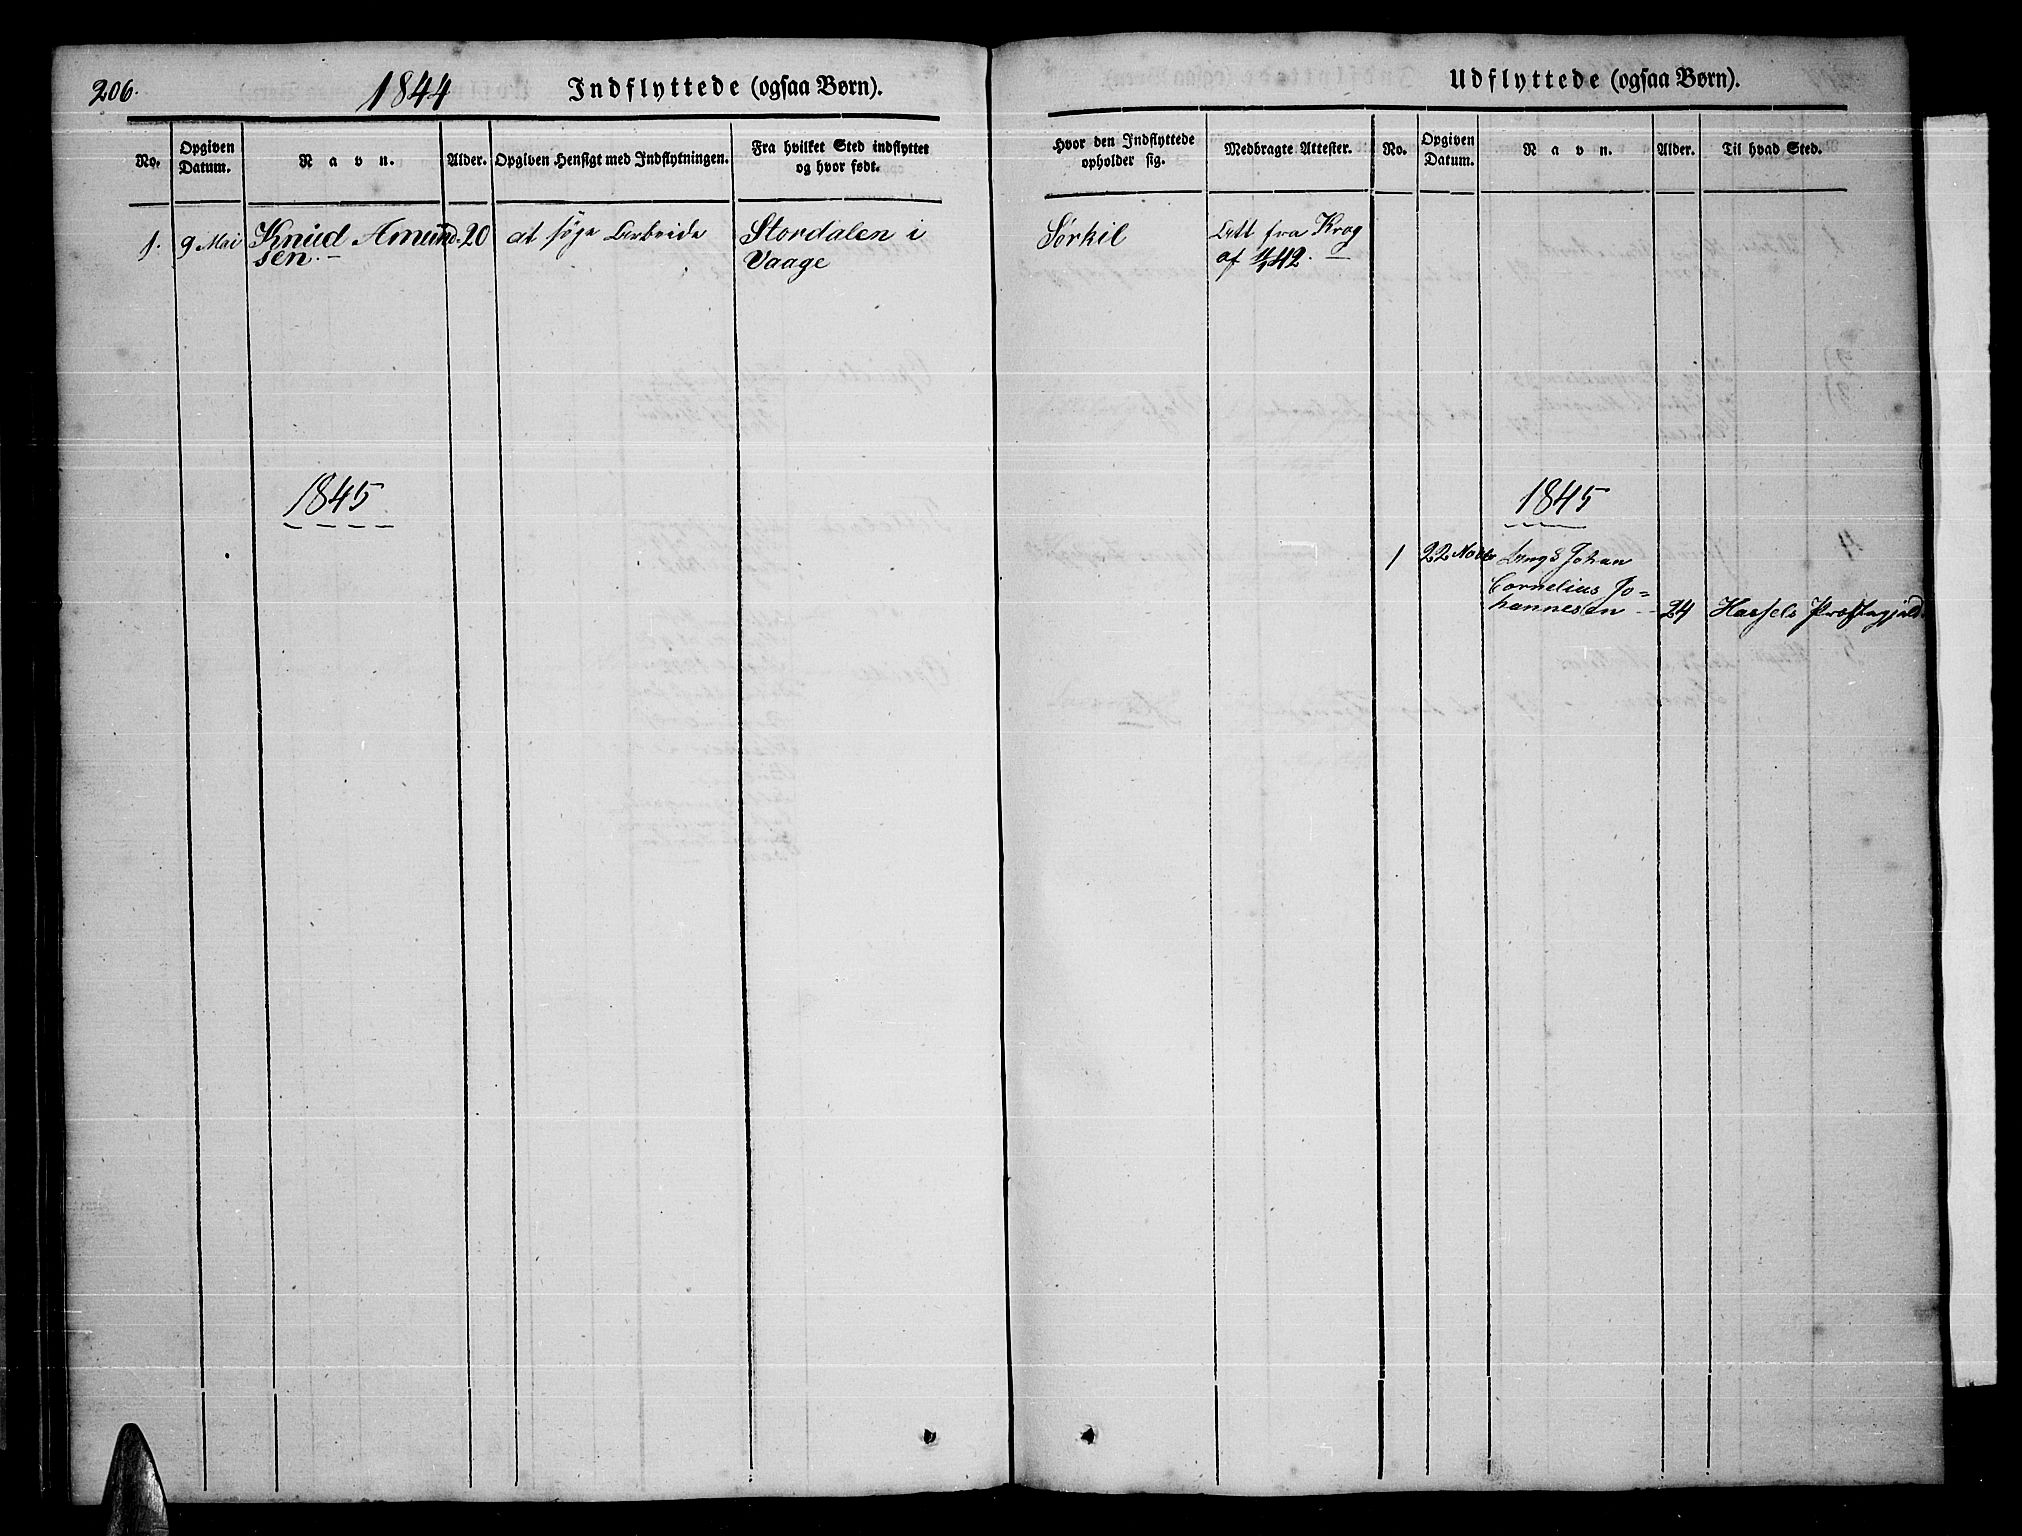 206.
1844
Indflyttede (ogsaa Børn).
No.
Opgiven Datum.
Navn.
Alder.
Opgiven Hensigt med Indflytningen.
Fra hvilket Sted indflyttet og hvor født.
1.
9 Mai
Knud Amund-
sen.
20
at søge Arbeide
Stordalen i
Vaage
1845
Udflyttede (ogsaa Børn).
Hvor den Indflyttede opholder sig.
Medbragte Attester.
No.
Opgiven Datum.
Navn.
Alder.
Til hvad Sted.
Sørkil
Att fra Krog
af 42.
1845
1
22 Novbr
Ungk Johan
Cornelius Jo=
hannesen
24
Hassels Præstegjeld